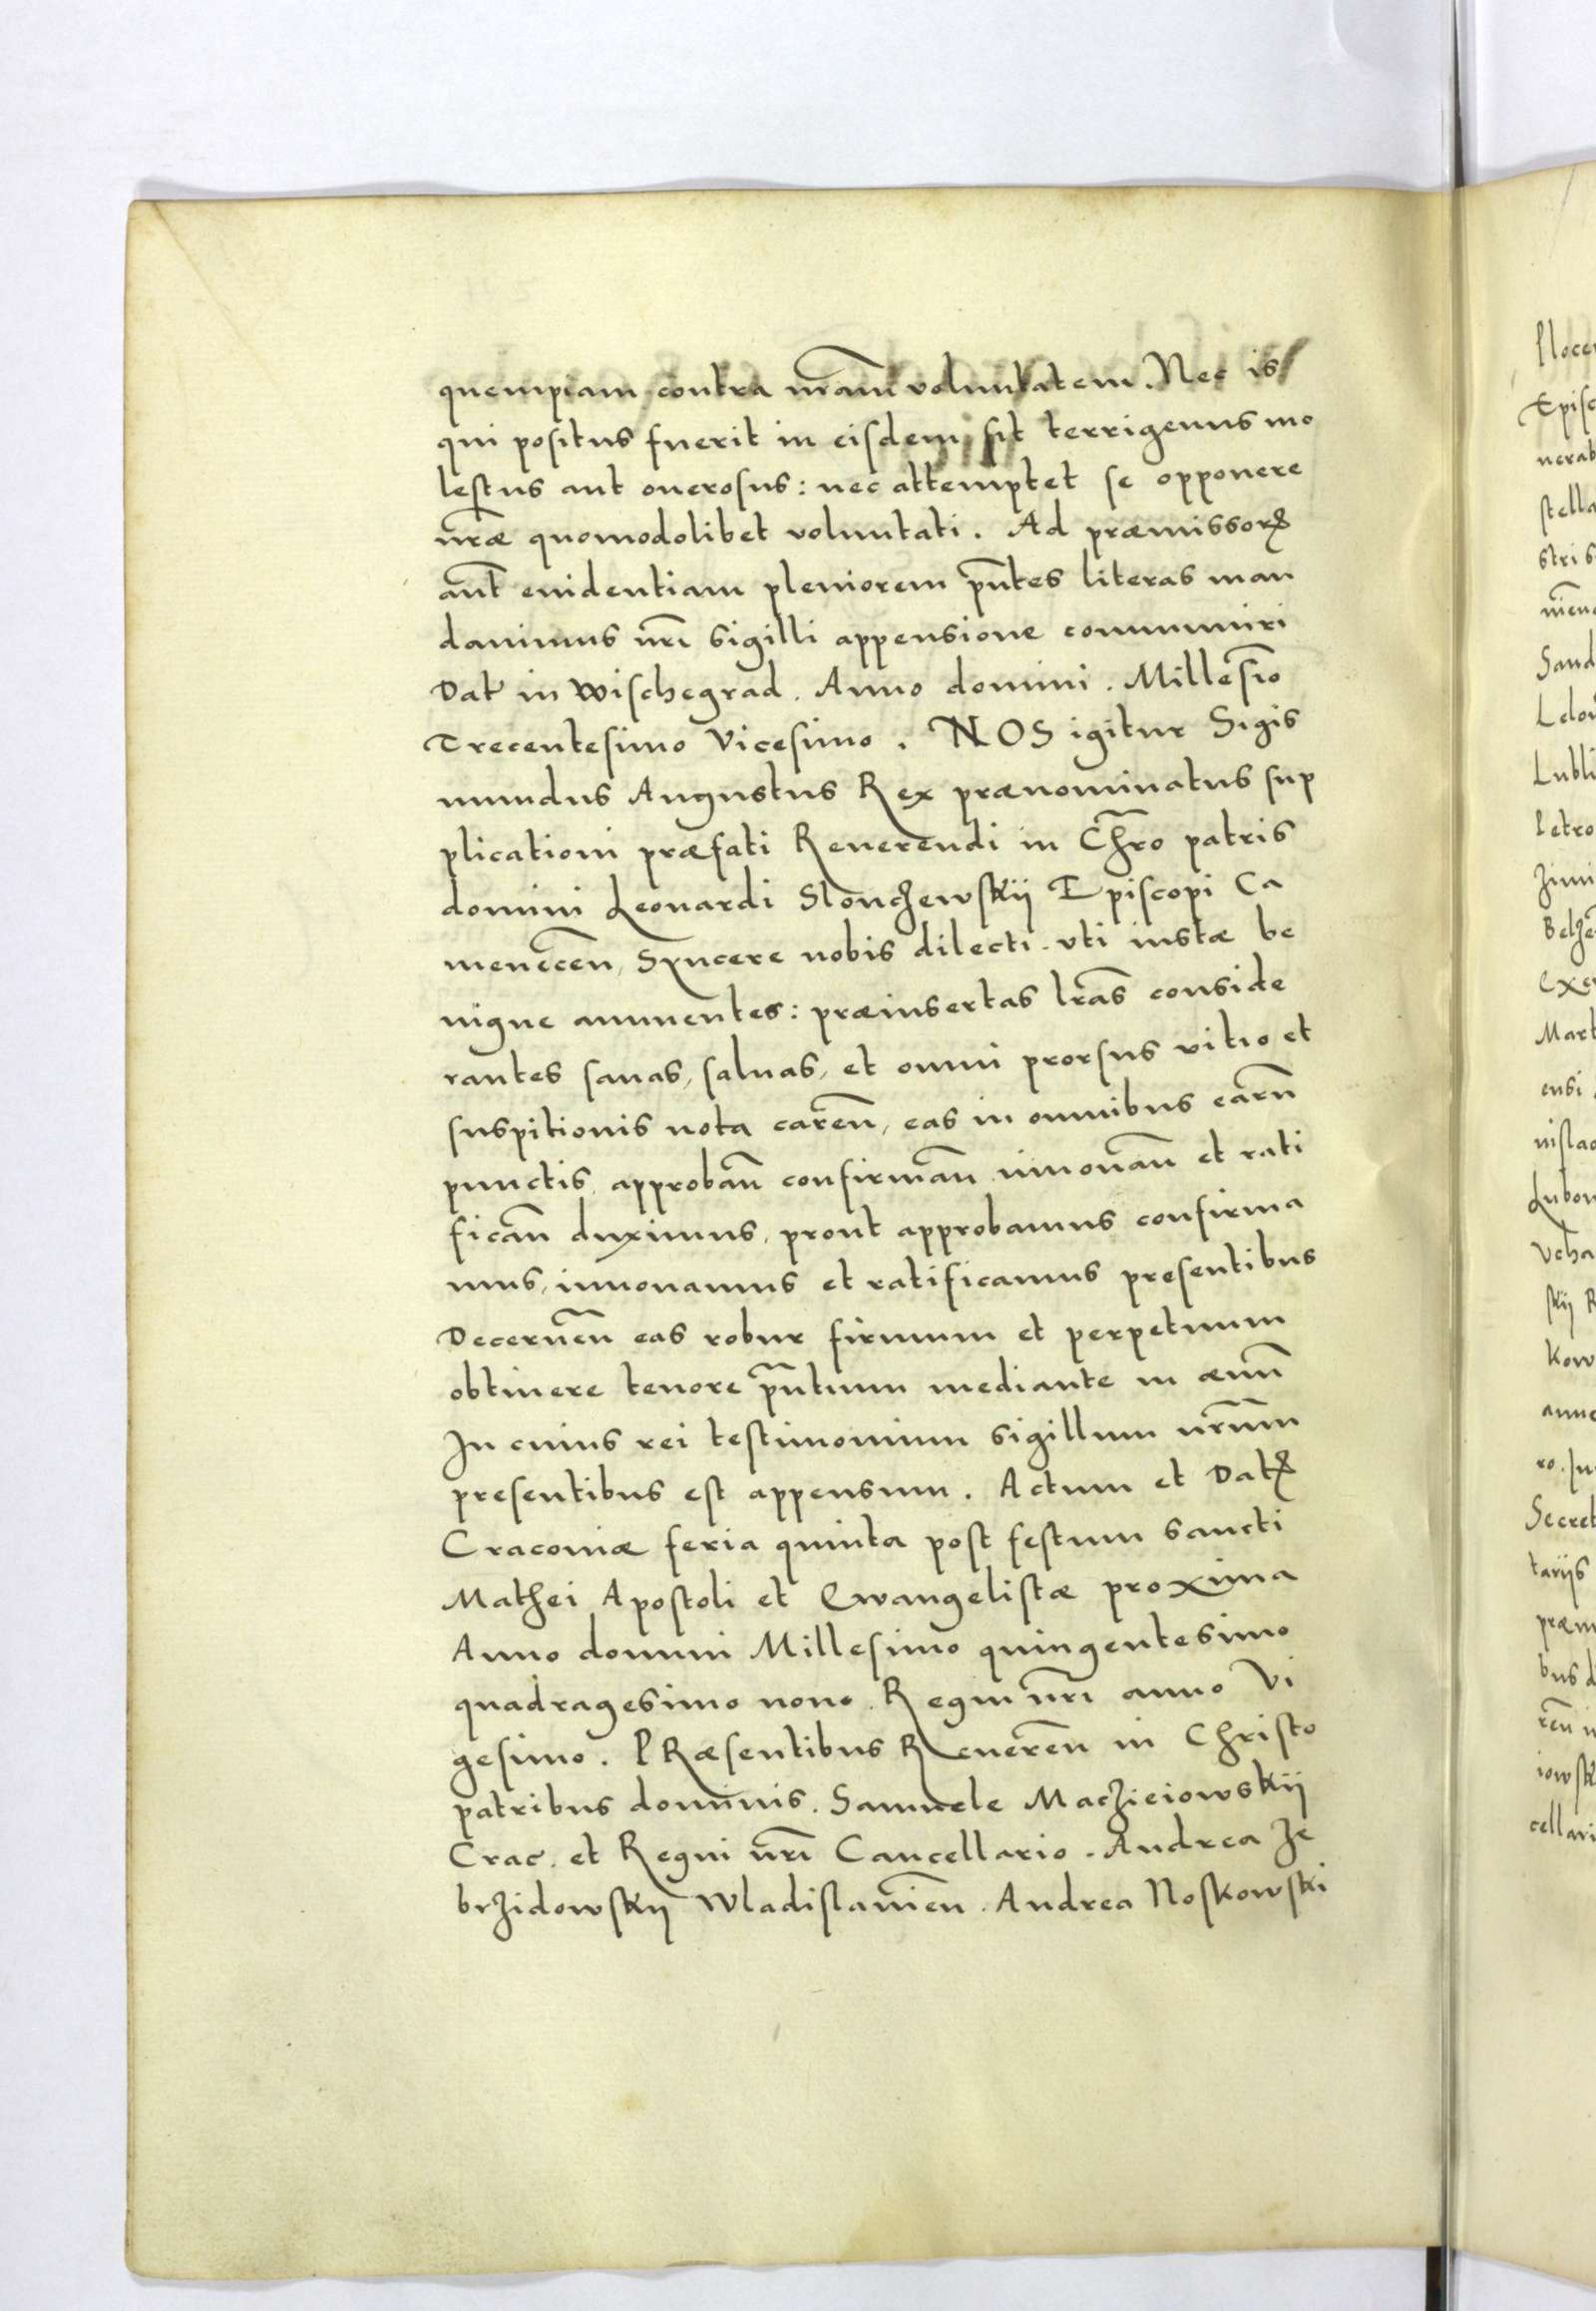 quempiam contra nr̃am voluntatem. Nec is
qui positus fuerit in eisdem sit terrigenus mo
lestus aut onerosus: nec attemptet se opponere
nr̃æ quomodolibet voluntati. Ad præmissorꝝ
aut̃ euidentiam pleniorem pñtes literas man
dauimus nr̃i sigilli appensione communiri
Dat̃ in Wischegrad. Anno domini. Millesĩo
Trecentesimo Vicesimo. NOS igitur Sigis
mundus Augustus Rex prænominatus sup
plicationi præfati Reuerendi in Chr̃o patris
domini Leonardi Slonczewskij Episcopi Ca
menecen̄, Syncere nobis dilecti. vti iustæ be
nigne annuentes: præinsertas lr̃as conside
rantes sanas, saluas, et omni prorsus vitio et
suspitionis nota caren̄, eas in omnibus earū
punctis, approban̄ confirman̄ innouan̄ et rati
fican̄ duximus, prout approbamus confirma
mus, innouamus et ratificamus presentibus
Decernen̄ eas robur firmum et perpetuum
obtinere tenore pñtium mediante in æuū
In cuius rei testimonium sigillum nr̃um
presentibus est appensum. Actum et Datꝝ
Cracouiæ feria quinta post festum sancti
Mathei Apostoli et Ewangelistæ proxima
Anno domini Millesimo quingentesimo
quadragesimo nono. Regni nr̃i anno Vi
gesimo. PRæsentibus Reueren̄ in Christo
patribus dominis. Samuele Maczieiowskij
Crac. et Regni nr̃i Cancellario. Andrea Ze
brzidowskij Wladislauien̄. Andrea Noskowski